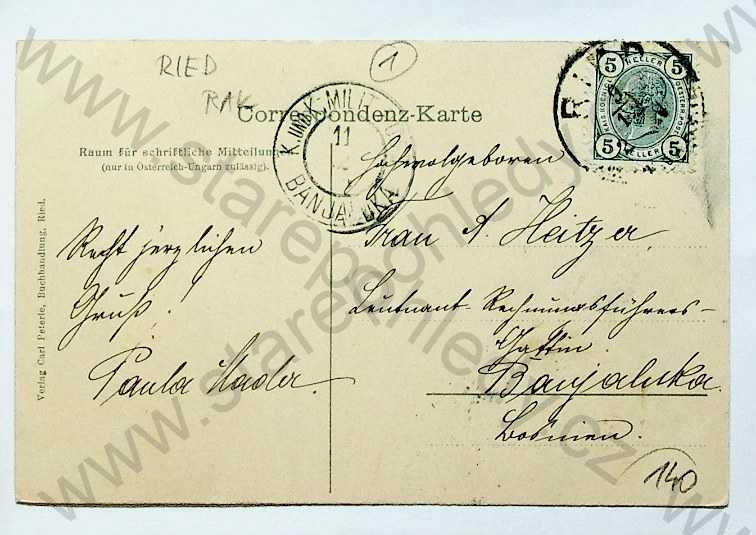 RIED
RAK
1
Correspondenz-Karte
Raum für schriftliche Mitteilungen
(nur in Österreich-Ungarn zulässig).
K. UND K. MILIT.
11
BANJALUKA
5 HELLER 5
5 HELLER 5
Verlag Carl Peterle, Buchhandlung, Ried.
Recht herzlichen
Gruß!
Paula Mader.
Hochwolgeboren
Frau A. Heitzer,
Leutnant-Rechnungsführers-
Gattin
Banjaluka.
Bosnien.
140
www.starepohledy.cz